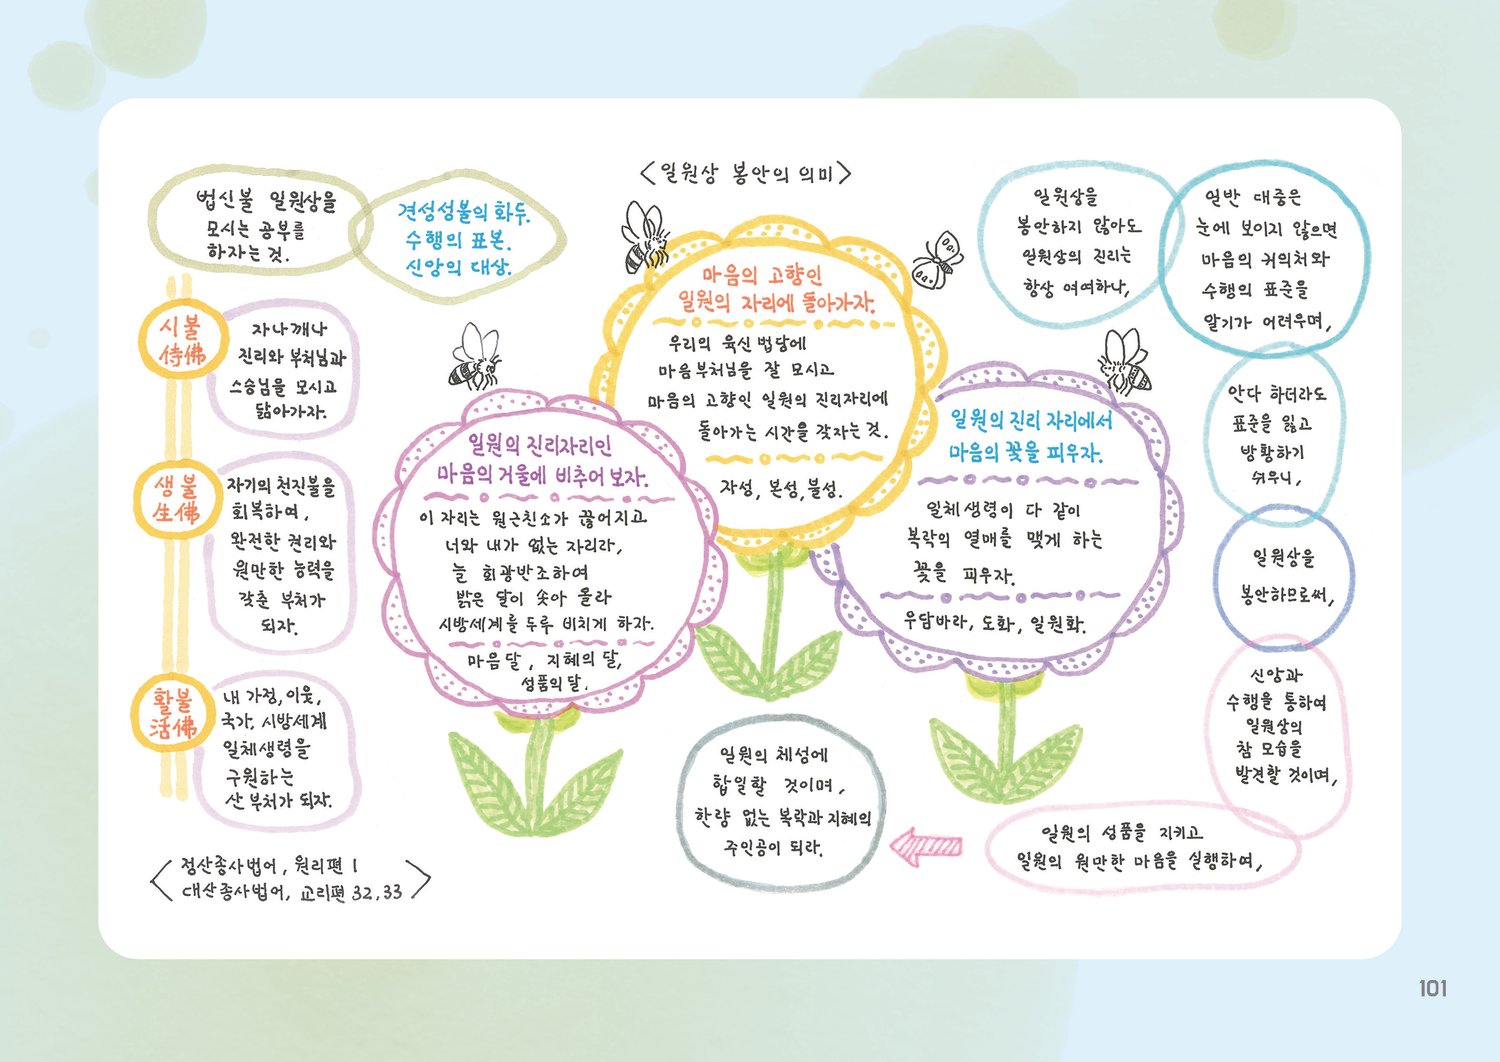 <일원상 봉안의 의미>
법신불 일원상을
모시는 공부를
하자는 것.
견성성불의 화두.
수행의 표본.
신앙의 대상.
시불
侍佛
자나깨나
진리와 부처님과
스승님을 모시고
닮아가자.
생불
生佛
자기의 천진불을
회복하여,
완전한 권리와
원만한 능력을
갖춘 부처가
되자.
활불
活佛
내 가정, 이웃,
국가. 시방세계
일체생령을
구원하는
산 부처가 되자.
정산종사법어, 원리편 1
대산종사법어, 교리편 32, 33
일원의 진리자리인
마음의 거울에 비추어 보자.
이 자리는 원근친소가 끊어지고
너와 내가 없는 자리라,
늘 회광반조하여
밝은 달이 솟아 올라
시방세계를 두루 비치게 하자.
마음달, 지혜의 달,
성품의 달.
마음의 고향인
일원의 자리에 돌아가자.
우리의 육신 법당에
마음부처님을 잘 모시고
마음의 고향인 일원의 진리자리에
돌아가는 시간을 갖자는 것.
자성, 본성, 불성.
일원의 진리 자리에서
마음의 꽃을 피우자.
일체생령이 다 같이
복락의 열매를 맺게 하는
꽃을 피우자.
우담바라, 도화, 일원화.
일원상을
봉안하지 않아도
일원상의 진리는
항상 여여하나,
일반 대중은
눈에 보이지 않으면
마음의 귀의처와
수행의 표준을
알기가 어려우며,
안다 하더라도
표준을 잃고
방황하기
쉬우니,
일원상을
봉안하므로써,
신앙과
수행을 통하여
일원상의
참 모습을
발견할 것이며,
일원의 성품을 지키고
일원의 원만한 마음을 실행하여,
일원의 체성에
합일할 것이며,
한량 없는 복락과 지혜의
주인공이 되라.
101